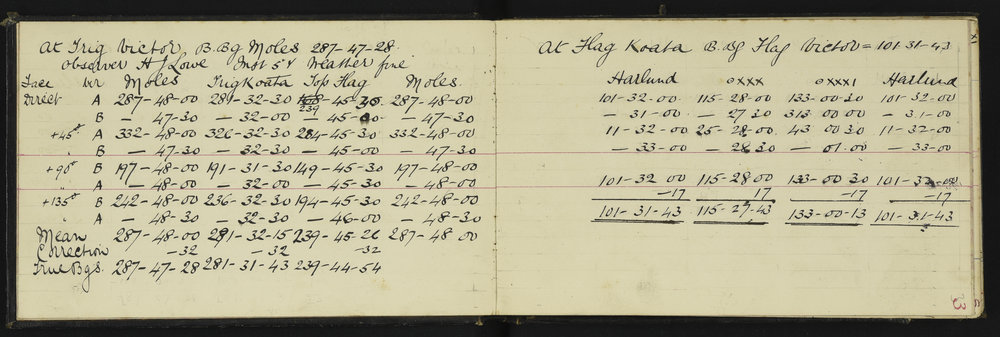 At Trig Victor B.Bg Moles 287-47-28
Observer H J Lowe Inst 5" Weather fine
Face Vr Moles Trig Koata Top Flag Moles
Direct A 287-48-00 281-32-30 239-45-30 287-48-00
B — 47-30 — 32-00 — 45-00 — 47-30
+45° A 332-48-00 326-32-30 284-45-30 332-48-00
" B — 47-30 — 32-30 — 45-00 — 47-30
+90° B 197-48-00 191-31-30 149-45-30 197-48-00
" A — 48-00 — 32-00 — 45-30 — 48-00
+135° B 242-48-00 236-32-30 194-45-30 242-48-00
" A — 48-30 — 32-30 — 46-00 — 48-30
Mean 287-48-00 281-32-15 239-45-26 287-48-00
Correction -32 32 -32
True Bgs. 287-47-28 281-31-43 239-44-54
At Flag Koata B.Bg Flag Victor = 101-31-43
Harlund OXXX OXXXI Harlund
101-32-00 115-28-00 133-00-30 101-32-00
— 31-00 — 27 30 313 00 00 — 31-00
11-32-00 25-28-00 43 00 30 11-32-00
— 33-00 — 28 30 — 01.00 — 33-00
101-32 00 115-28 00 133-00 30 101-32-00
-17 17 -17 -17
101-31-43 115-27-43 133-00-13 101-31-43
3